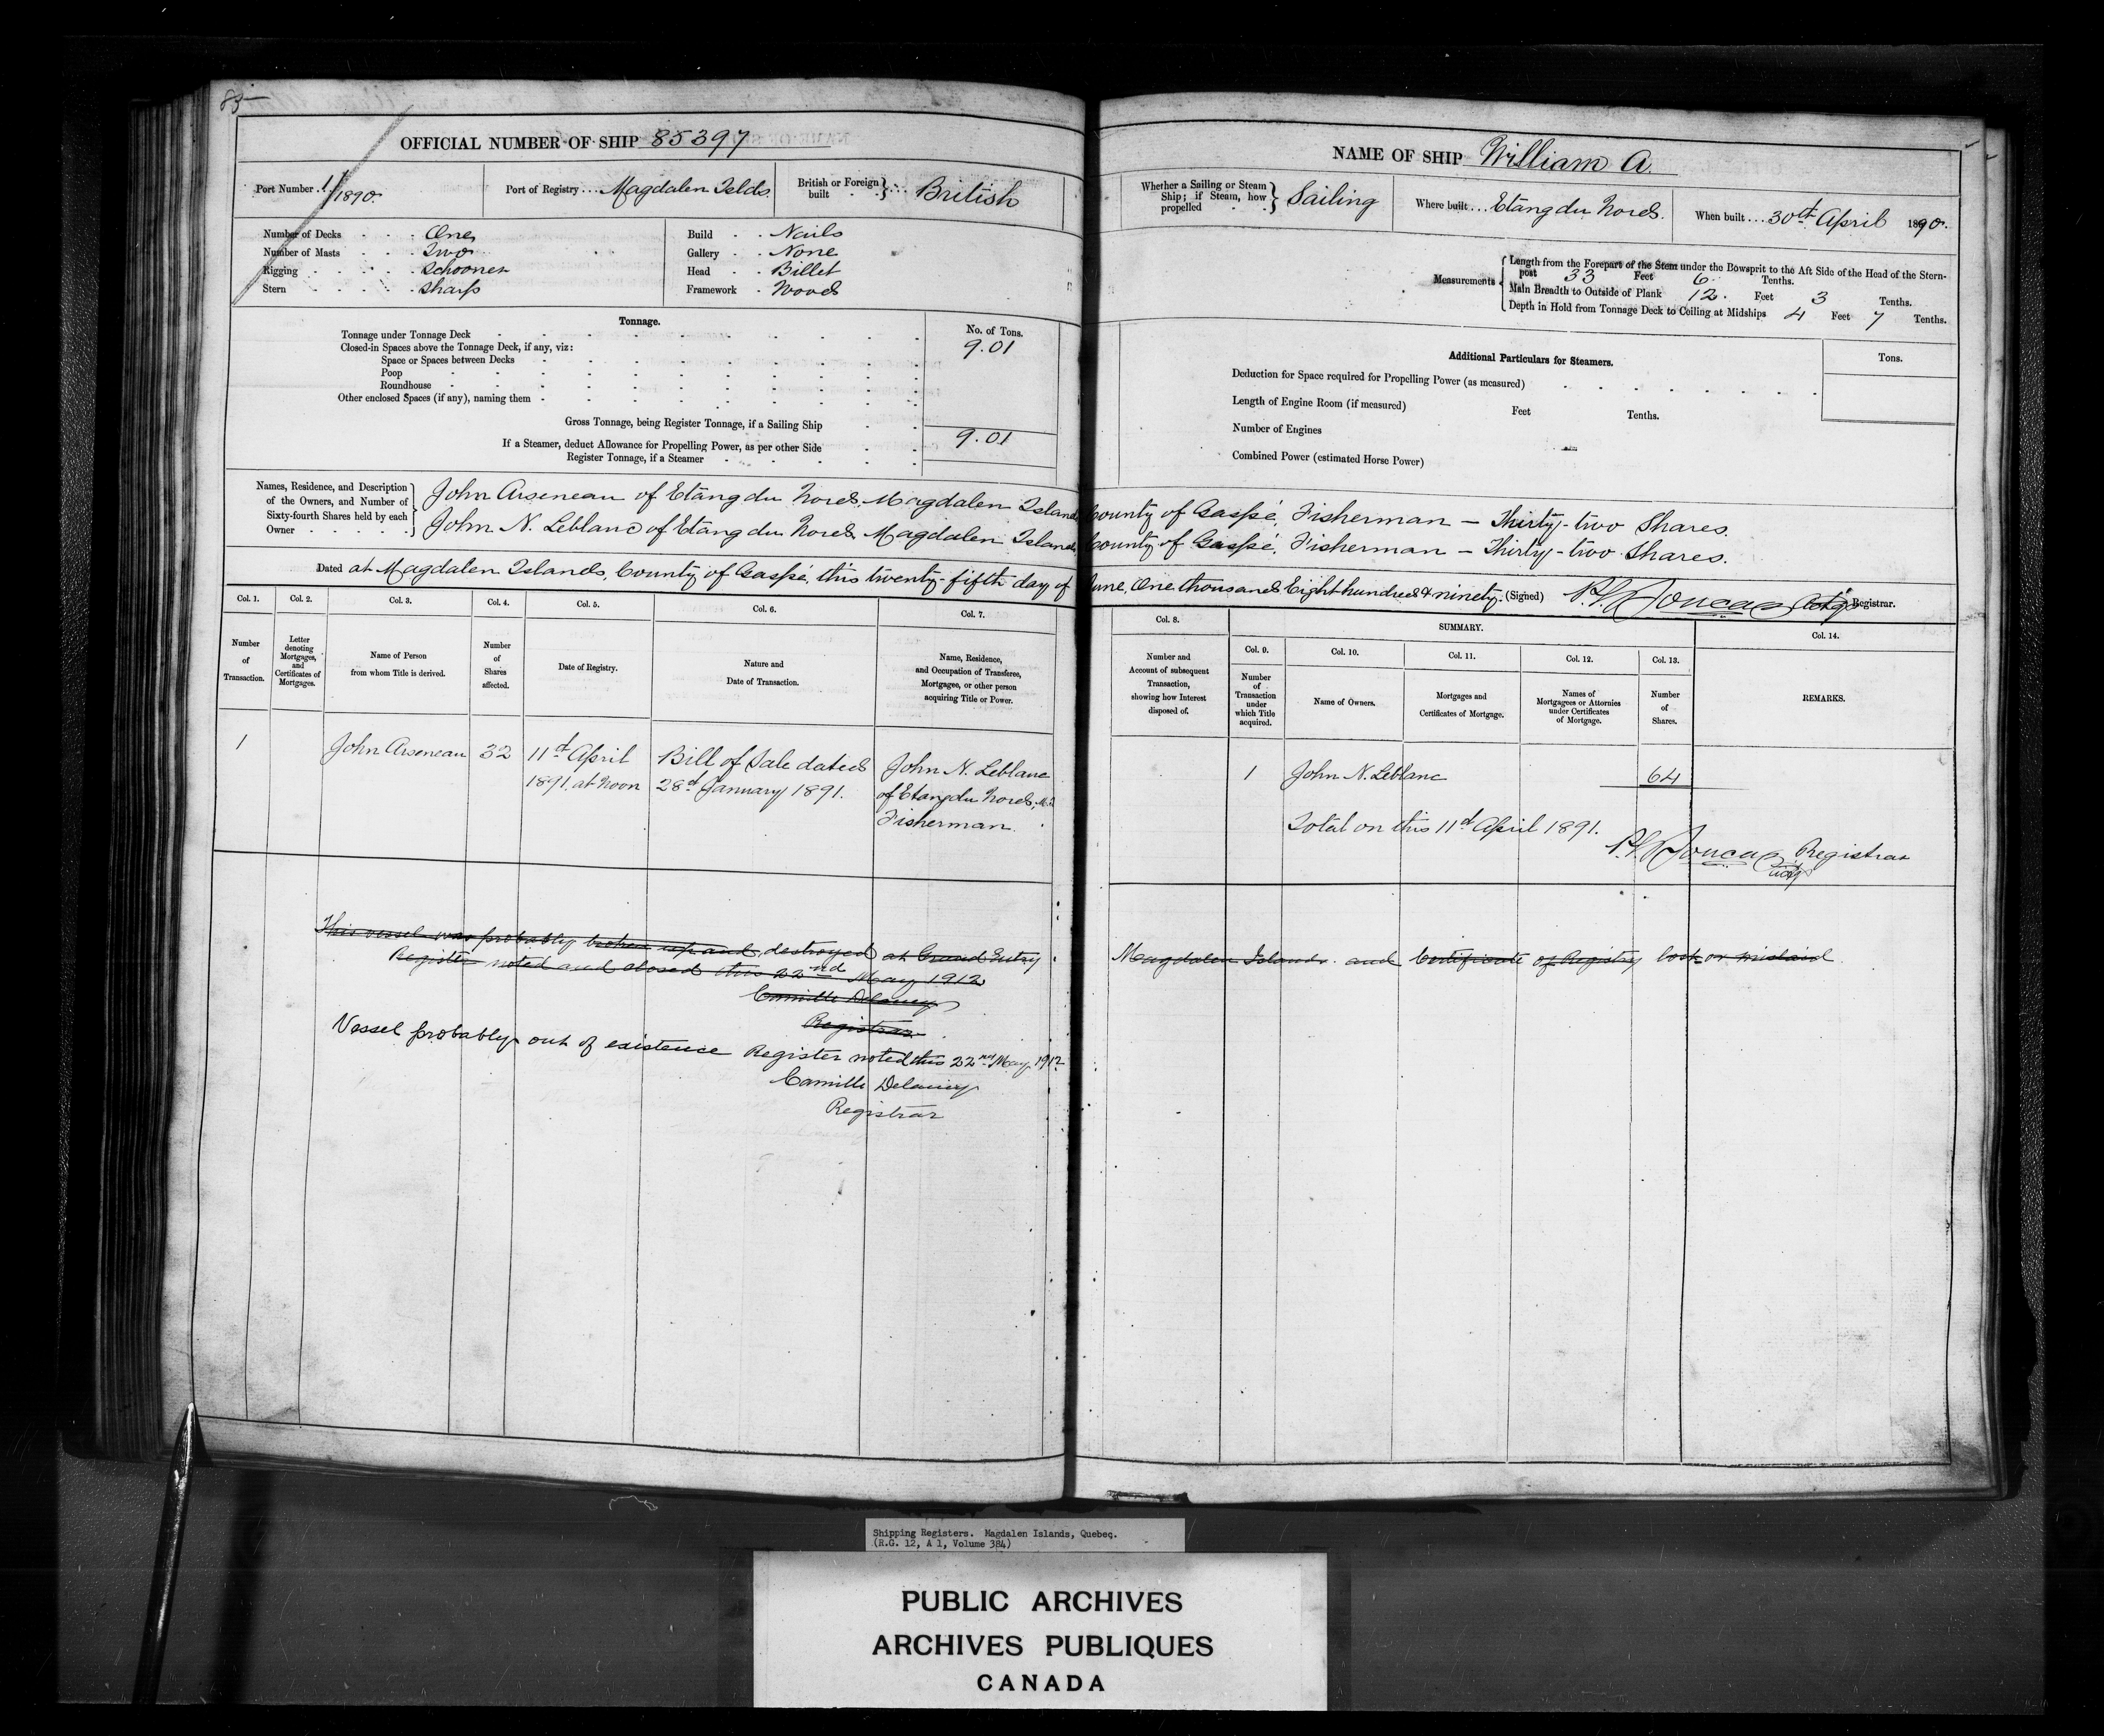 85
OFFICIAL NUMBER OF SHIP 85397
Port Number 1/1890.
Port of Registry ... Magdalen Islds.
British or Foreign built } ... British
Number of Decks One
Number of Masts Two
Rigging Schooner
Stern Sharp
Build Nails
Gallery None
Head Billet
Framework Wood
Tonnage.
No. of Tons.
Tonnage under Tonnage Deck 9.01
Closed-in Spaces above the Tonnage Deck, if any, viz:
Space or Spaces between Decks
Poop
Roundhouse
Other enclosed Spaces (if any), naming them
Gross Tonnage, being Register Tonnage, if a Sailing Ship 9.01
If a Steamer, deduct Allowance for Propelling Power, as per other Side
Register Tonnage, if a Steamer
NAME OF SHIP William A.
Whether a Sailing or Steam Ship; if Steam, how propelled } Sailing
Where built ... Etang du Nord.
When built ... 30th April 1890.
Measurements
Length from the Forepart of the Stem under the Bowsprit to the Aft Side of the Head of the Stern-
post 33 Feet 6 Tenths.
Main Breadth to Outside of Plank 12. Feet 3 Tenths.
Depth in Hold from Tonnage Deck to Ceiling at Midships 4 Feet 7 Tenths.
Additional Particulars for Steamers.
Tons.
Deduction for Space required for Propelling Power (as measured)
Length of Engine Room (if measured) Feet Tenths.
Number of Engines
Combined Power (estimated Horse Power)
Names, Residence, and Description
of the Owners, and Number of
Sixty-fourth Shares held by each
Owner
John Arseneau of Etang du Nord, Magdalen Islands County of Gaspé, Fisherman — Thirty-two Shares.
John N. Leblanc of Etang du Nord Magdalen Islands County of Gaspé, Fisherman — Thirty-two Shares.
Dated at Magdalen Islands, County of Gaspé, this twenty-fifth day of June, One thousand Eight hundred & ninety. (Signed) Joncas Actg Registrar.
Col. 1.
Col. 2.
Col. 3.
Col. 4.
Col. 5.
Col. 6.
Col. 7.
Number of Transaction.
Letter denoting Mortgages, and Certificates of Mortgages.
Name of Person from whom Title is derived.
Number of Shares affected.
Date of Registry.
Nature and Date of Transaction.
Name, Residence, and Occupation of Transferee, Mortgagee, or other person acquiring Title or Power.
Col. 8.
SUMMARY.
Col. 14.
Col. 9.
Col. 10.
Col. 11.
Col. 12.
Col. 13.
Number and Account of subsequent Transaction, showing how Interest disposed of.
Number of Transaction under which Title acquired.
Name of Owners.
Mortgages and Certificates of Mortgage.
Names of Mortgagees or Attornies under Certificates of Mortgage.
Number of Shares.
REMARKS.
1 John Arseneau 32 11th April Bill of Sale dated John N. Leblanc
1891. at Noon 28th January 1891. of Etang du Nord, M.I.
Fisherman.
1 John N. Leblanc 64
Total on this 11th April 1891.
Joncas Registrar
This vessel was probably broken up and destroyed at Grand Entry Magdalen Islands. and Certificate of Registry lost or mislaid.
Register noted and closed this 22nd May 1912
Camille Delaney
Registrar
Vessel probably out of existence Register noted this 22nd May 1912
Camille Delaney
Registrar
Shipping Registers. Magdalen Islands, Quebec.
(R.G. 12, A 1, Volume 384)
PUBLIC ARCHIVES
ARCHIVES PUBLIQUES
CANADA